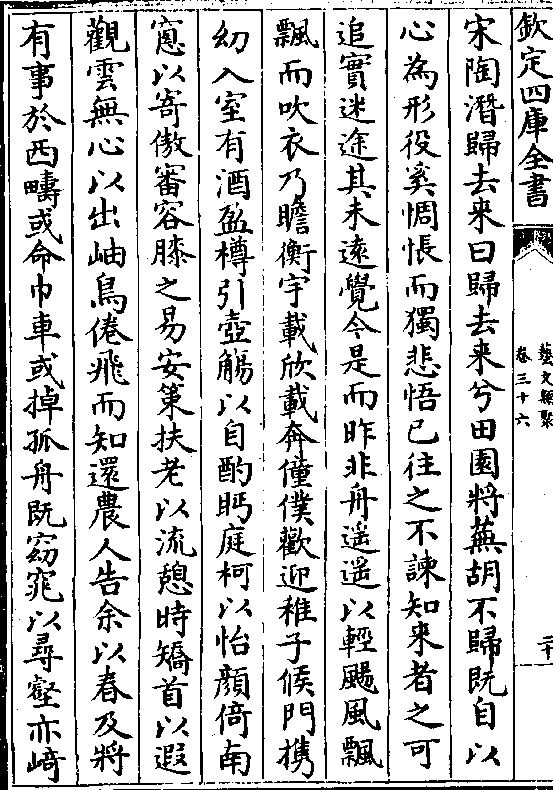 欽定四庫全書
藝文類聚
卷三十六
二十
宋陶潛歸去來曰歸去來兮田園將蕪胡不歸既自以
心為形役奚惆悵而獨悲悟已往之不諫知來者之可
追實迷途其未遠覺今是而昨非舟遥遥以輕颺風飄
飄而吹衣乃瞻衡宇載欣載奔僮僕歡迎稚子候門携
幼入室有酒盈樽引壺觴以自酌眄庭柯以怡顔倚南
窻以寄傲審容膝之易安策扶老以流憩時矯首以遐
觀雲無心以出岫鳥倦飛而知還農人告余以春及將
有事於西疇或命巾車或掉孤舟既窈窕以尋壑亦﨑